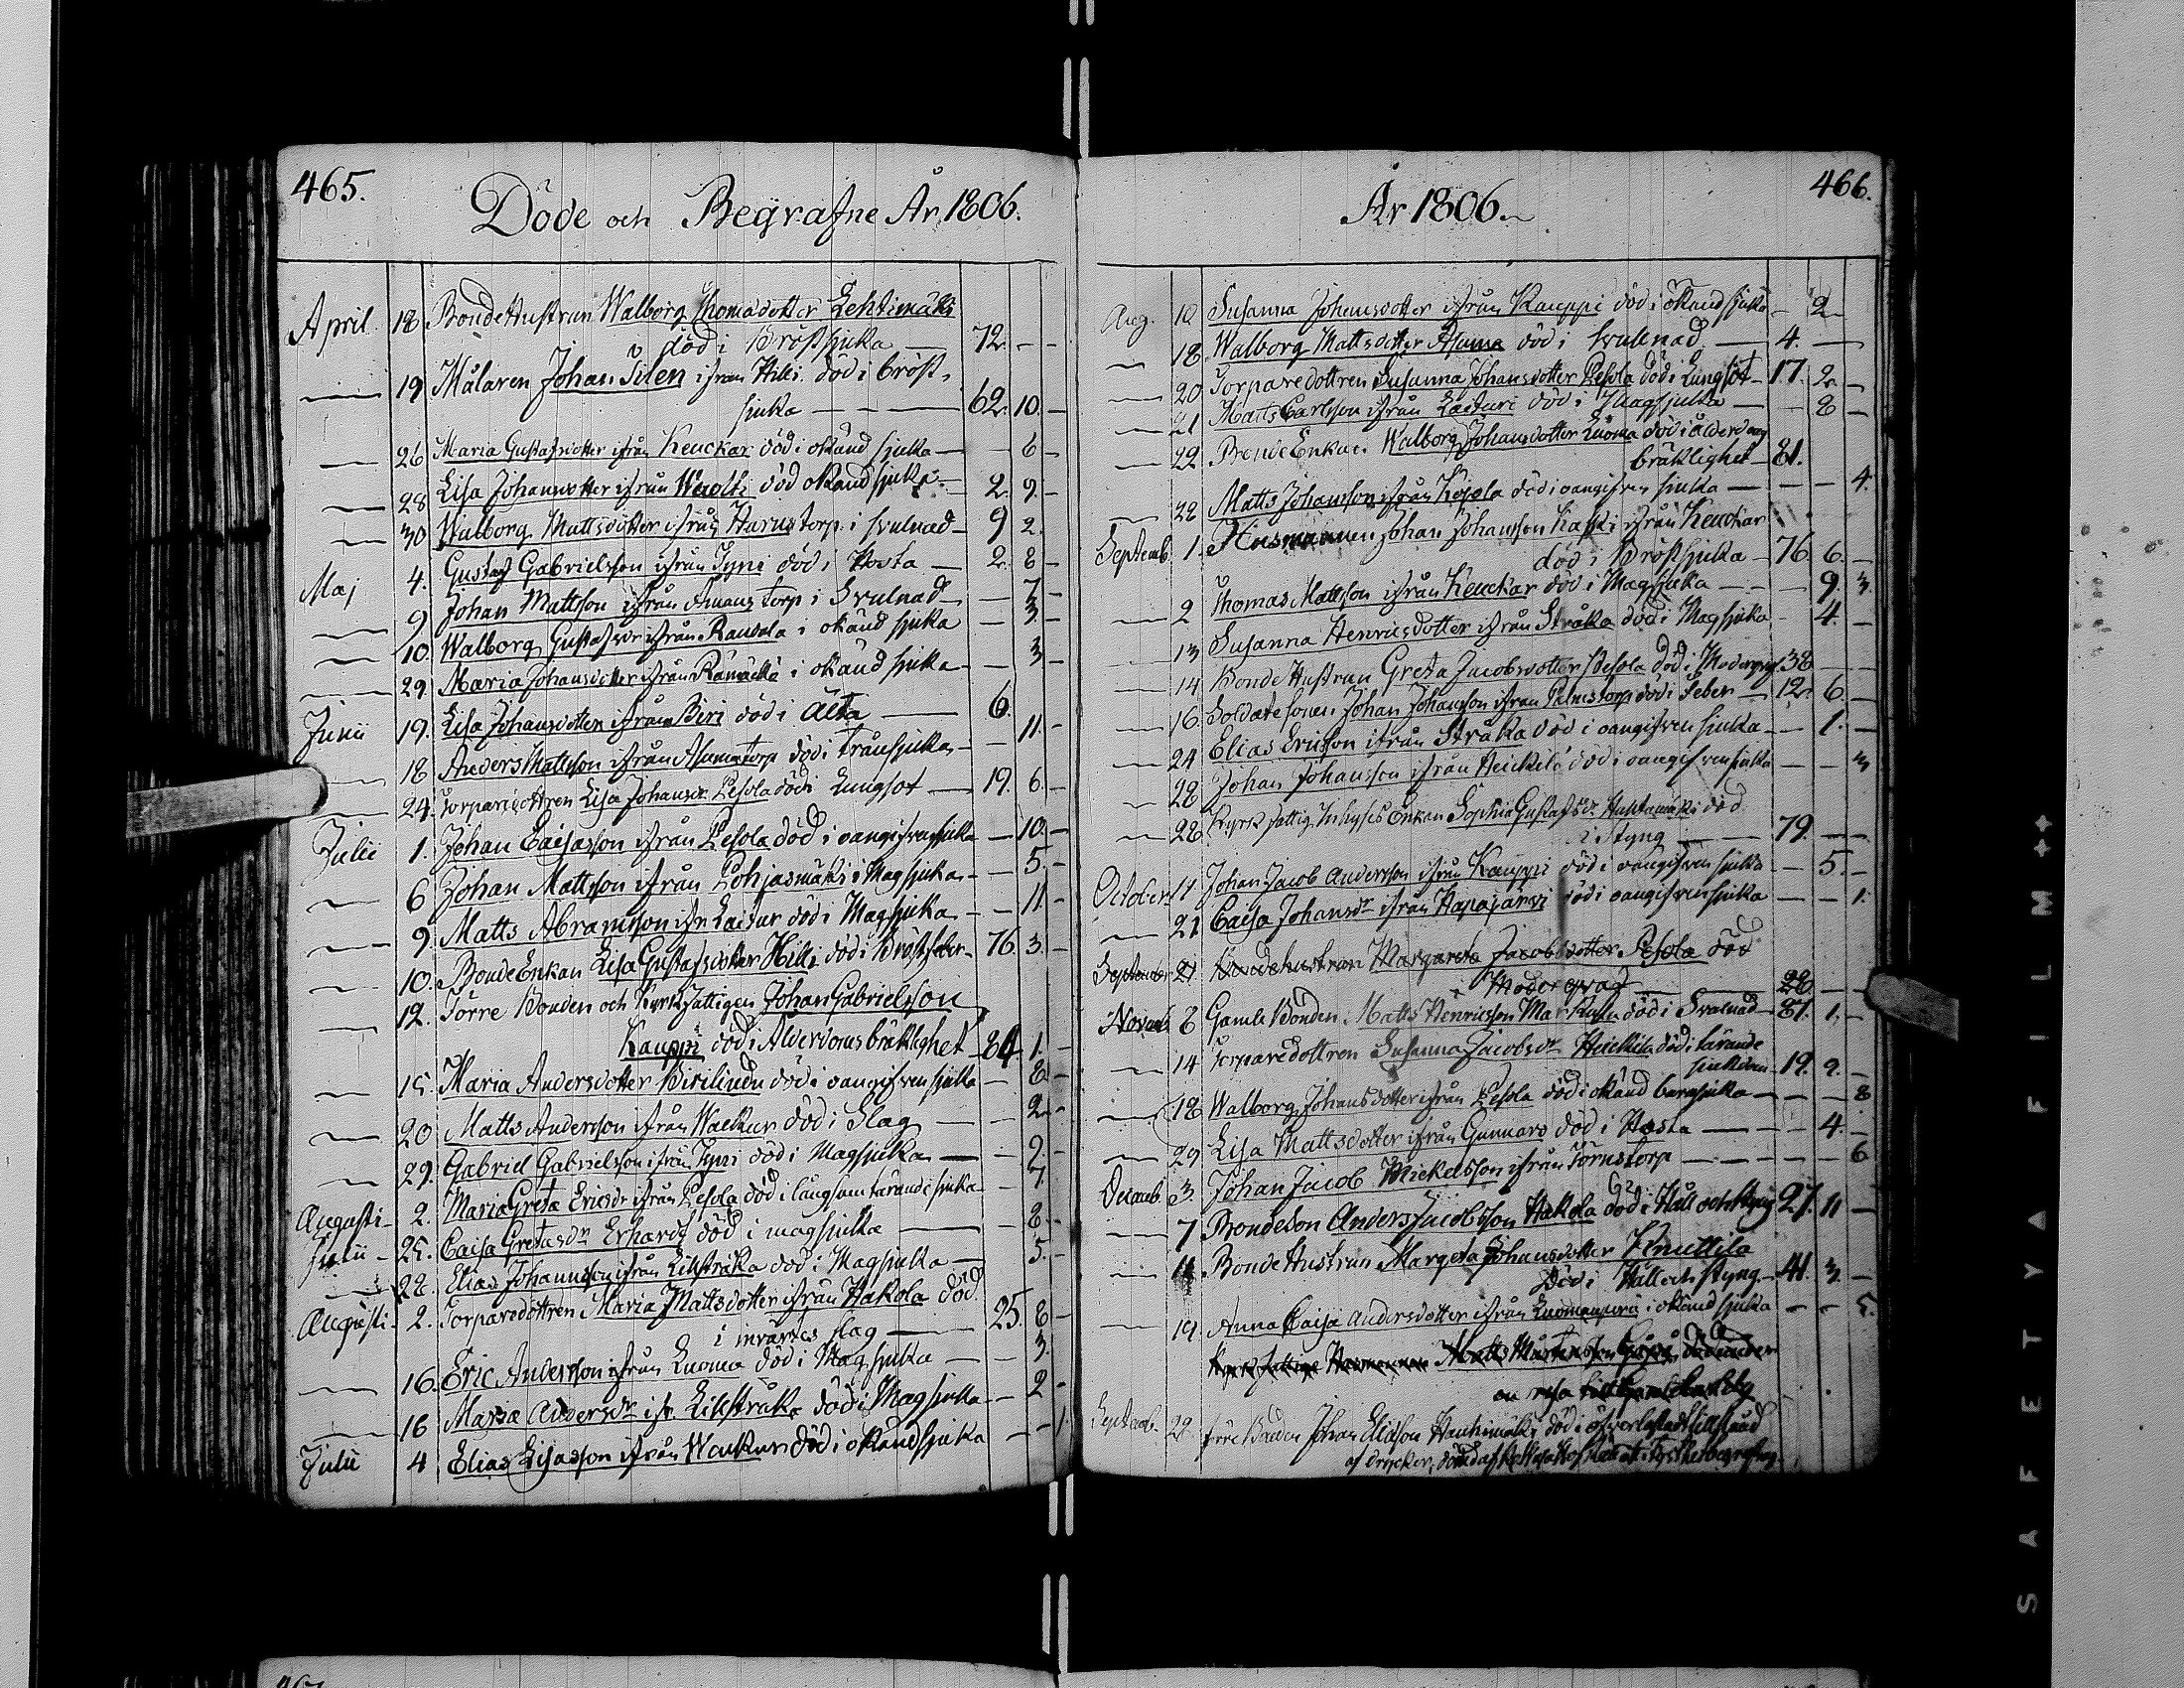 465.
Döde och Begrafne År 1806.
April. 18 Bonde Hustrun Walborg Thomasdotter Lehtimäki
död i Bröstsjuka — 72. - -
19 Målaren Johan Silen ifrån Hilli död i bröst-
sjuka — 62. 10. -
26 Maria Gustafsdotter ifrån Keuckar död i okänd sjuka — - 6 -
28 Lisa Johansdotter ifrån död okänd sjuka — 2. 9. -
30 Walborg Mattsdotter ifrån Harnstorp i svulnad — 9 2.
Maj 4. Gustaf Gabrielsson ifrån Typi död i Hosta — 2. 8 -
9 Johan Mattsson ifrån torp i Svulnad — 7 -
10 Walborg Gustafsdr ifrån Raudala i okänd sjuka — 3 -
29. Maria Johansdotter ifrån Rämäckä i okänd sjuka — 3 -
Junii 19. Lisa Johansdotter ifrån Biri död i Älta — 6.
18 Anders Mattsson ifrån Asumatorp död i trånsjuka — 11. -
24. Torparedottren Lisa Johansdr Pesola död i Lungsot — 19. 6. -
Julii 1. Johan Caisasson ifrån Pesola död i oangifven sjuka — 10. -
6 Johan Mattsson ifrån Pohjasmäki i Magsjuka — 5. -
9. Matts Abramsson ifr Laitur död i Magsjuka — 11 -
10. Bonde Enkan Lisa Gustafsdotter Hilli död i Bröstfeber — 76. 3. -
12. Förre Bonden och Kyrkfattigen Johan Gabrielsson
Kauppi död i Ålderdomsbräklighet — 84 1. -
15. Maria Andersdotter död i oangifven sjuka — 8 -
20 Matts Andersson ifrån Wackur död i Slag — 2 -
29. Gabriel Gabrielsson ifrån Typpi död i Magsjuka — 2 -
Augusti 2. Maria Greta Ericsdr ifrån Pesola död i långsam tärande sjuka — 7.
Julii 25. Caisa Gretasdr Erhards död i magsjuka — 8 -
28. Elias Johansson ifrån Lillstråka död i Magsjuka — 5. -
Augusti 2. Torparedottren Maria Mattsdotter ifrån Hakola död
i invärtes slag — 25. 8 -
16. Eric Andersson ifrån Luoma död i Magsjuka — 3.
16 Maria Andersdr ifr. Lillstråka död i Magsjuka — 2 -
Julii 4 Elias Lisasson ifrån Wackur död i okänd sjuka — - - 1.
År 1806.
466.
Aug. 12 Susanna Johansdotter ifrån Kauppi död i okänd sjuka — 2 -
18. Walborg Mattsdotter Asuma död i svulnad — 4. —
20 Torparedottren Susanna Johansdotter Pesola död i Lungsot — 17. 2. -
21 Matts Carlsson ifrån Laituri död i Magsjuka — 8 -
22. Bonde Enkan Walborg Johansdotter Luoma död i ålderdoms
bräklighet — 81.
28 Matts Johansson ifrån Kojola död i oangifven sjuka — - - 4.
Septemb. 1. Husmannen Johan Johansson ifrån Keuckar
död i Bröstsjuka — 76. 6. -
2 Thomas Mattsson ifrån Keuckar död i Magsjuka — 9. 3
13 Susanna Henricsdotter ifrån Stråka död i Magsjuka - 4. -
14 Bonde Hustrun Greta Jacobsdotter Pesola död i Modergrig 38 —
16. Soldatesonen Johan Johansson ifrån Palmstorp död i Feber — 12. 6. -
24 Elias Ericsson ifrån Stråka död i oangifven sjuka — 1. -
28 Johan Johansson ifrån Heickilä död i oangifven sjuka — - 3
28 Kyrkfattig Inhyses Enkan Sophia Gustafsdr död
i Styng — 79. —
October 17 Johan Jacob Andersson ifrån Kauppi död i oangifven sjuka — 5. -
21 Caisa Johansdr ifrån Hapajärvi död i oangifven sjuka — - 1.
September 21 Bondehustrun Margareta Jacobsdotter Pesola död
i — 28 —
Novemb. 8 Gamle Bonden Matts Henricsson Markula död i Svulnad — 87. 1. -
14 Torparedottren Susanna Jacobsdr Heickilä död i tärande
sjukdom — 19. 9. -
18 Walborg Johansdotter ifrån Pesola död i okänd barnsjuka — - - 8
29 Lisa Mattsdotter ifrån Gunnars död i Hosta — - 4. -
Decemb. 3. Johan Jacob Mickelsson ifrån Törnstorp — - - 6
7 Bondeson Anders Jacobsson Hakola död i Håll och Styng 27. 11 —
11 Bonde Hustrun Margeta Johansdotter Knuttila
Död i Håll och styng — 41. 3. -
19. Anna Caisa Andersdotter ifrån Luomanperä i okänd sjuka — - 5.
Kyrkfattige Husmannen Matts Mårtensson död under
en resa till Gamlakarleby
Septemb. 28 Förre Bonden Johan Eliasson Hauhimäki död i
af drycker,